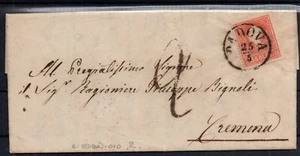 PADOVA
25
5
All Pregiatissimo Signore
il Sigr Ragioniere Giuseppe Bignoli
Cremona